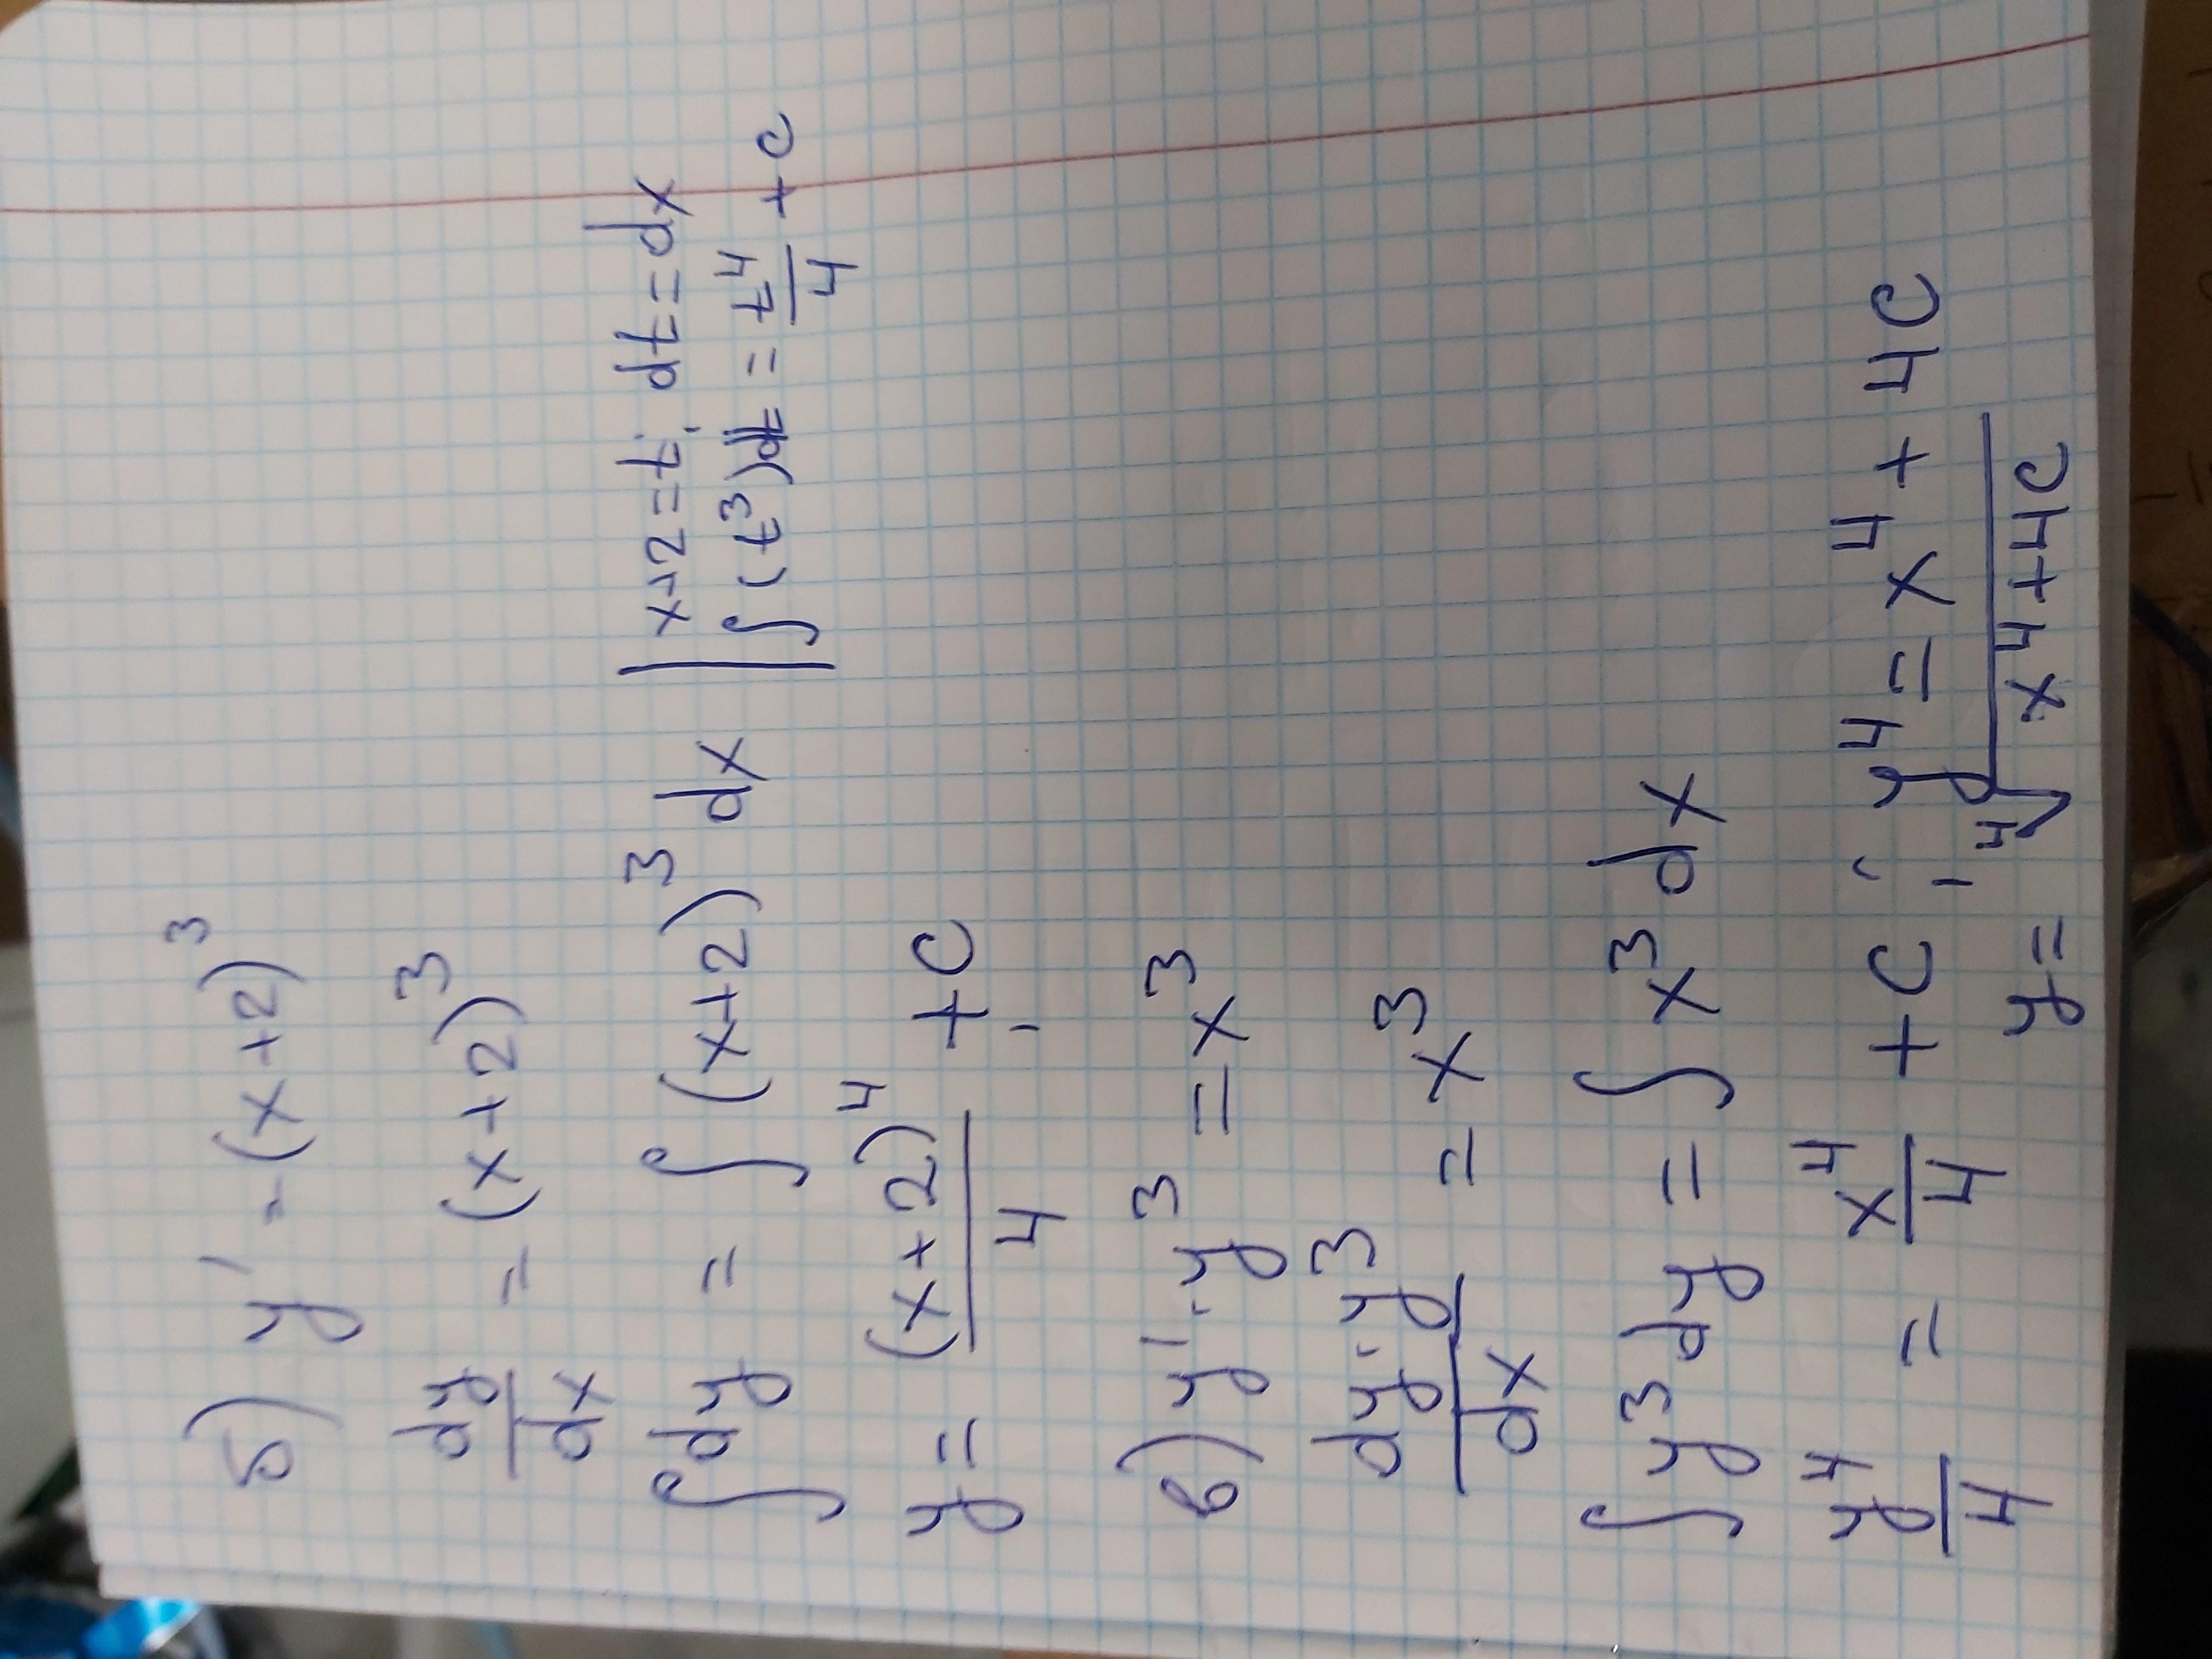 б) y' = (x+2)³
dy/dx = (x+2)³
∫dy = ∫(x+2)³ dx | x+2=t; dt=dx
∫(t³)dt = t⁴/4 + c
y = (x+2)⁴/4 + C
в) y'·y³ = x³
dy·y³/dx = x³
∫y³dy = ∫x³dx
y⁴/4 = x⁴/4 + C; y⁴ = x⁴ + 4C
y = ⁴√(x⁴+4C)